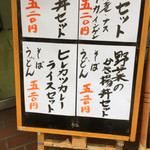 セット
尾・ナス
五二〇円
丼セット
五二〇円
野菜の
かき揚丼セット
そば
うどん
五五〇円
ヒレカツカレー
ライスセット
そば
うどん
五五〇円